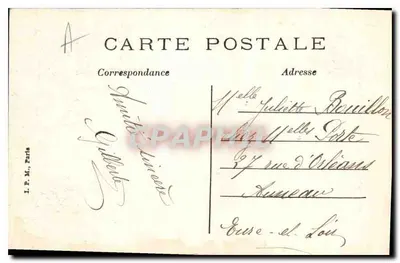 A
CARTE POSTALE
Correspondance
Adresse
Amitié sincère
Gilberte
Melle Juliette Bouillon
chez Melles Porte
27 rue d'Orléans
Auneau
Eure-et-Loir
I. P. M., Paris
CPAPHIL